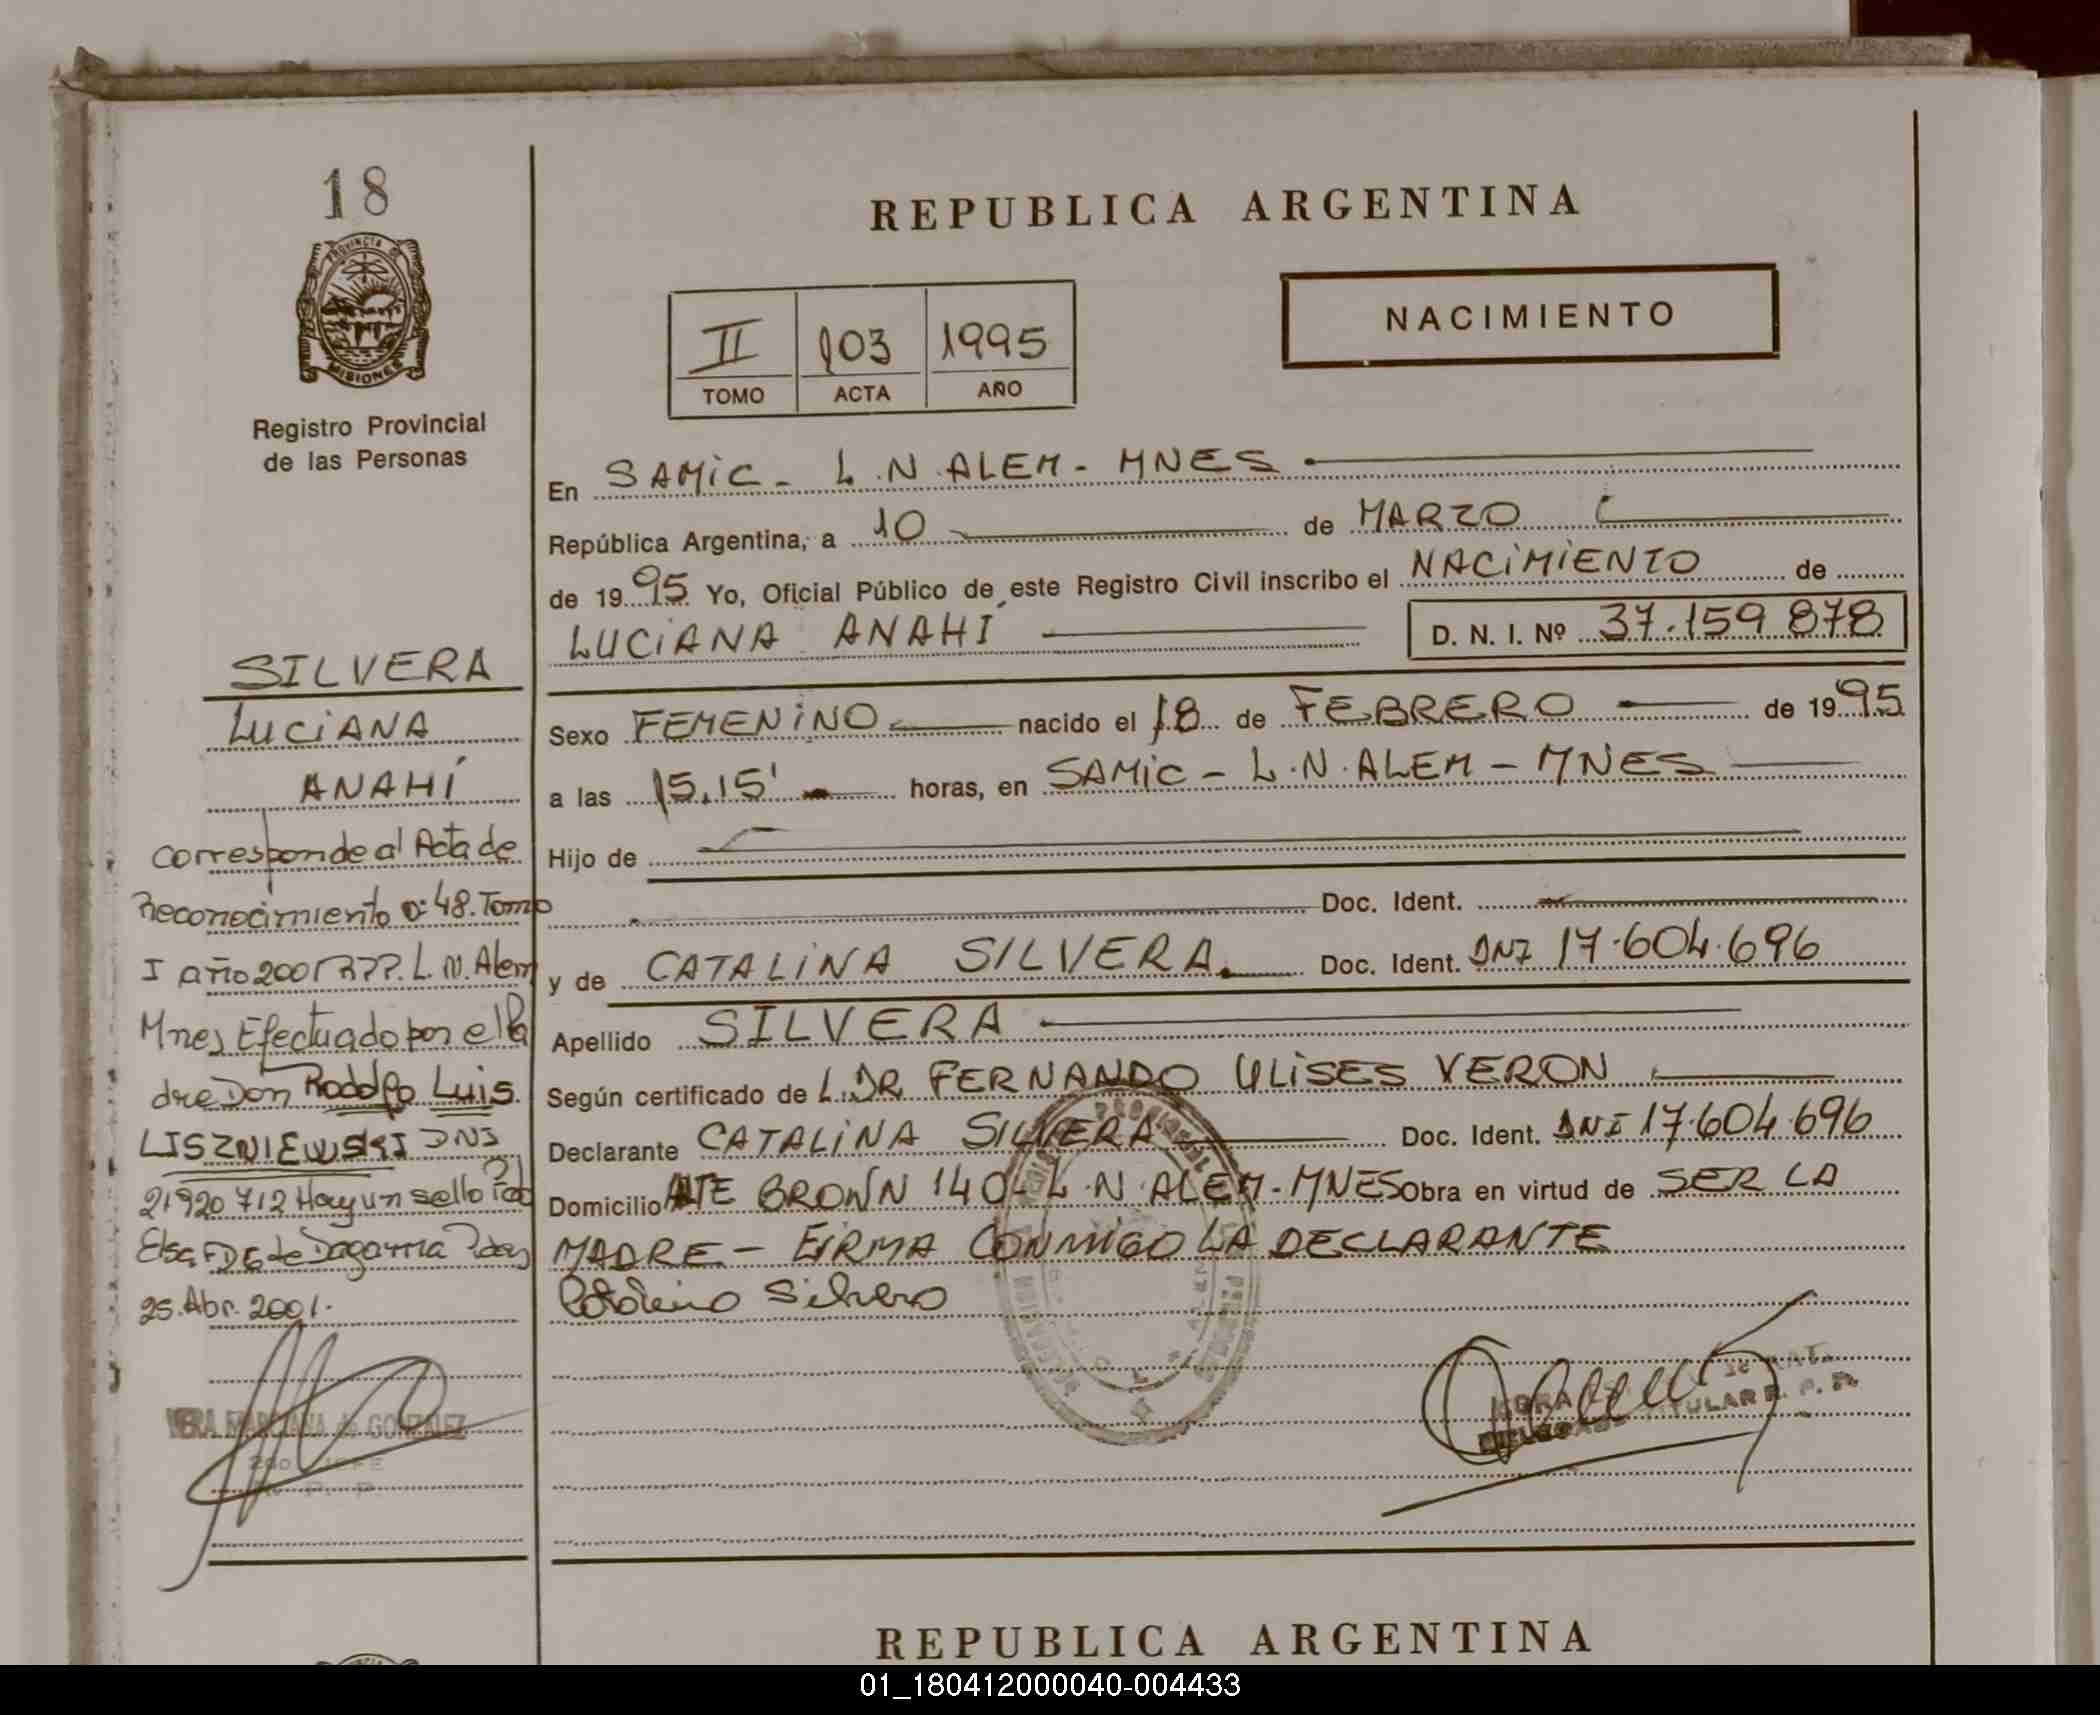 18
PROVINCIA DE
MISIONES
Registro Provincial
de las Personas
SILVERA
LUCIANA
ANAHÍ
Corresponde al Acta de
Reconocimiento 48. Tomo
I año 2001 L. N. Alem
Mnes Efectuado por el Pa
dre Don Rodolfo Luis
LISZNIEWSKI DNI
21920712 Hay un sello
Elsa de Dagarma
25. Abr. 2001.
VERA MARCIANA de GONZALEZ
REPUBLICA ARGENTINA
II 103 1995
TOMO ACTA AÑO
NACIMIENTO
En SAMIC - L.N. ALEM - MNES
República Argentina, a 10 de MARZO
de 1995 Yo, Oficial Público de este Registro Civil inscribo el NACIMIENTO de
LUCIANA ANAHÍ D. N. I. Nº 37.159 878
Sexo FEMENINO nacido el 18 de FEBRERO de 1995
a las 15.15' horas, en SAMIC - L.N. ALEM - MNES
Hijo de
Doc. Ident.
y de CATALINA SILVERA Doc. Ident. DNI 17.604.696
Apellido SILVERA
Según certificado de L. DR FERNANDO ULISES VERON
Declarante CATALINA SILVERA Doc. Ident. DNI 17.604.696
Domicilio ALTE BROWN 140 - L.N. ALEM - MNES Obra en virtud de SER LA
MADRE - FIRMA CONMIGO LA DECLARANTE
Catalina Silvera
TITULAR R. P. P.
REPUBLICA ARGENTINA
01_180412000040-004433